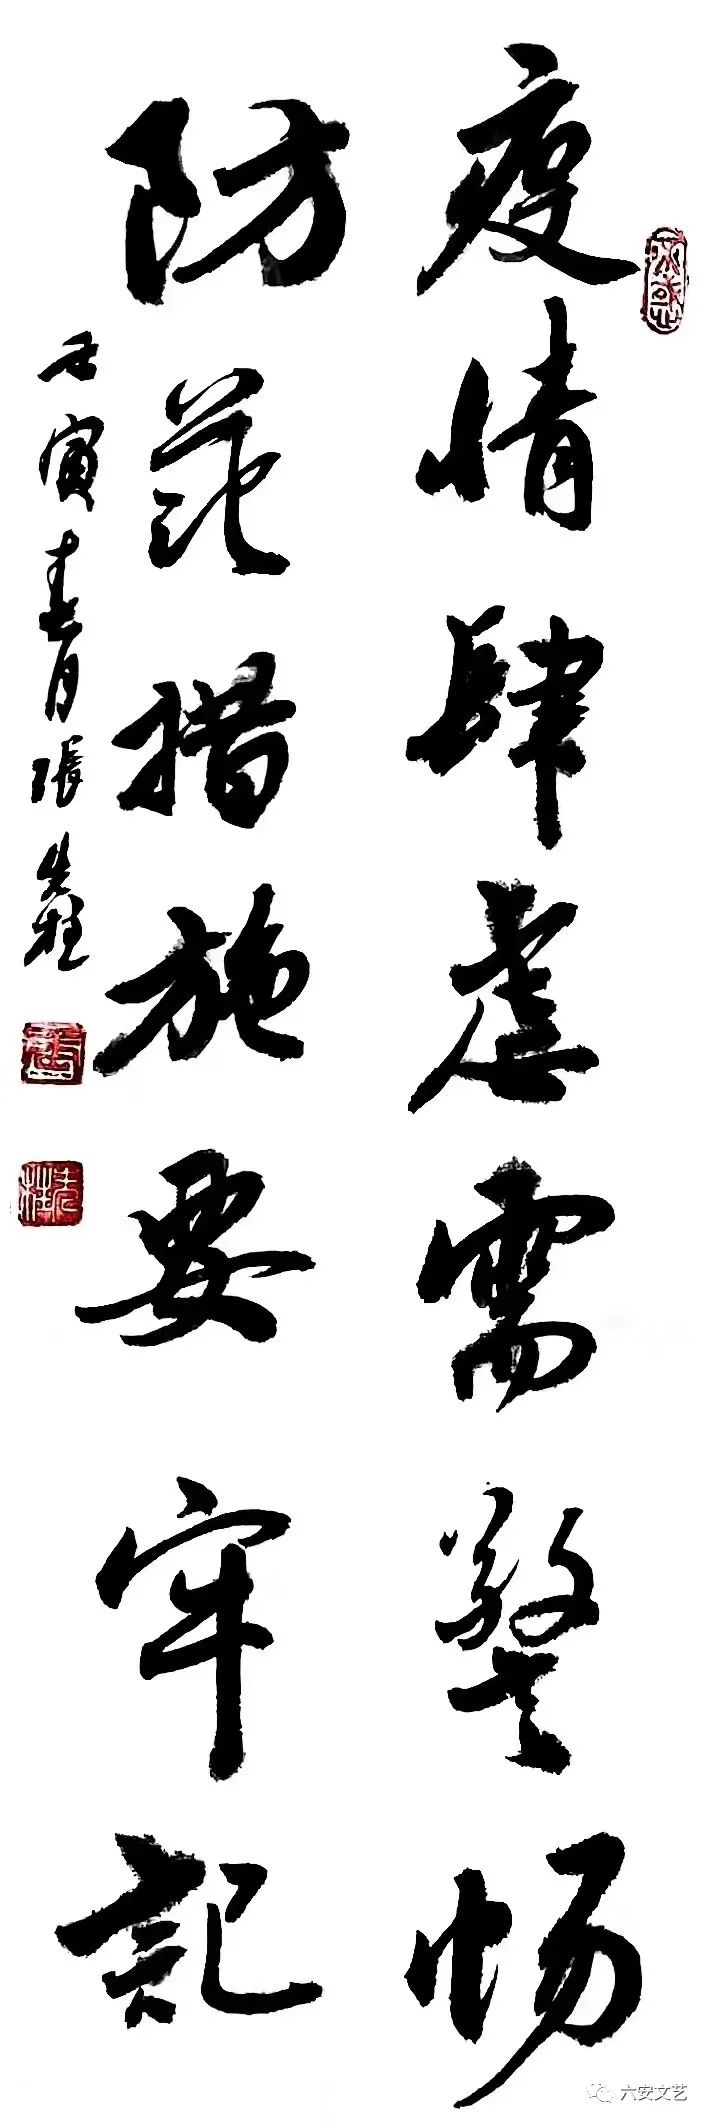 疫情肆虐需警惕
防范措施要牢记
壬寅春月张先柱
六安文艺